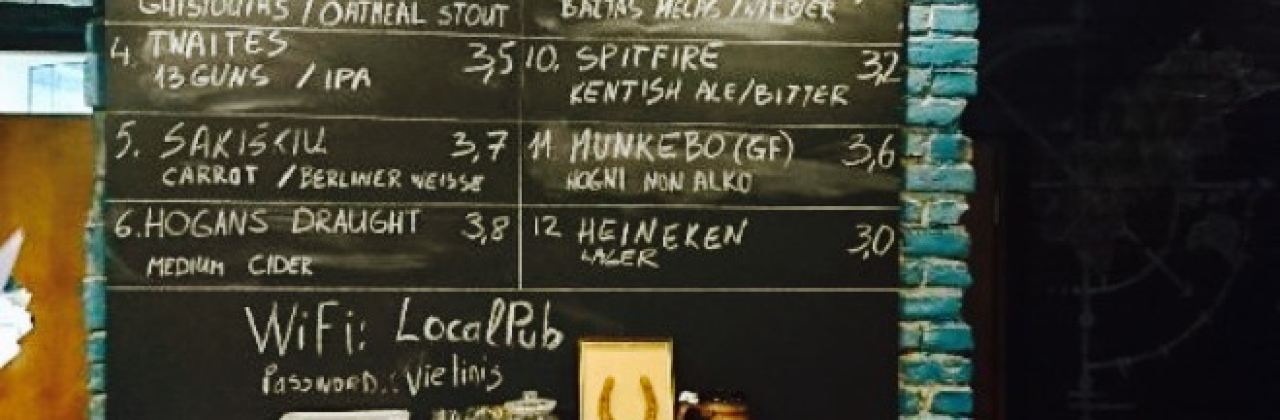 /OATMEAL STOUT
BALTAS
4. TWAITES 3,5
13 GUNS / IPA
5. SAKIŠKIŲ 3,7
CARROT / BERLINER WEISSE
6. HOGANS DRAUGHT 3,8
MEDIUM CIDER
10. SPITFIRE 3,2
KENTISH ALE/BITTER
11 MUNKEBO (GF) 3,6
HOGNI NON ALKO
12 HEINEKEN 3,0
LAGER
WiFi: LocalPub
PASSWORD.: Vielinis